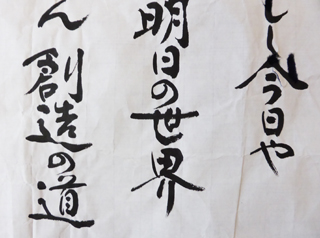 し今日や
明日の世界
ん創造の道